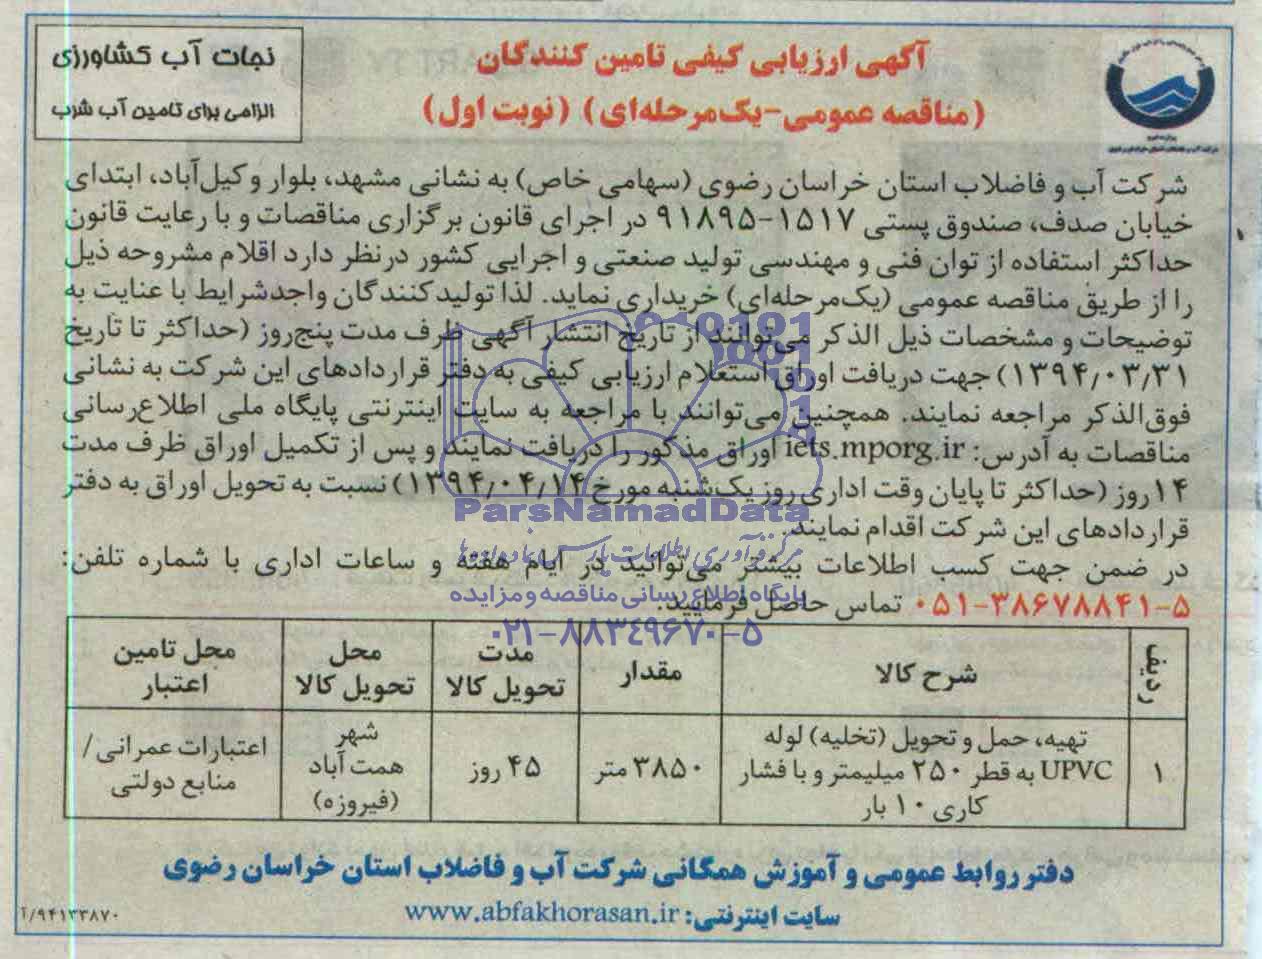 آگهی ارزیابی کیفی تامین کنندگان
(مناقصه عمومی-یک‌مرحله‌ای) (نوبت اول)
نجات آب کشاورزی
الزامی برای تامین آب شرب
شرکت آب و فاضلاب استان خراسان رضوی (سهامی خاص) به نشانی مشهد، بلوار وکیل‌آباد، ابتدای
خیابان صدف، صندوق پستی ۱۵۱۷-۹۱۸۹۵ در اجرای قانون برگزاری مناقصات و با رعایت قانون
حداکثر استفاده از توان فنی و مهندسی تولید صنعتی و اجرایی کشور درنظر دارد اقلام مشروحه ذیل
را از طریق مناقصه عمومی (یک‌مرحله‌ای) خریداری نماید. لذا تولیدکنندگان واجدشرایط با عنایت به
توضیحات و مشخصات ذیل الذکر می‌توانند از تاریخ انتشار آگهی ظرف مدت پنج‌روز (حداکثر تا تاریخ
۱۳۹۴/۰۳/۳۱) جهت دریافت اوراق استعلام ارزیابی کیفی به دفتر قراردادهای این شرکت به نشانی
فوق‌الذکر مراجعه نمایند. همچنین می‌توانند با مراجعه به سایت اینترنتی پایگاه ملی اطلاع‌رسانی
مناقصات به آدرس: iets.mporg.ir اوراق مذکور را دریافت نمایند و پس از تکمیل اوراق ظرف مدت
۱۴ روز (حداکثر تا پایان وقت اداری روز یک‌شنبه مورخ ۱۳۹۴/۰۴/۱۴) نسبت به تحویل اوراق به دفتر
قراردادهای این شرکت اقدام نمایند.
در ضمن جهت کسب اطلاعات بیشتر می‌توانید در ایام هفته و ساعات اداری با شماره تلفن:
۰۵۱-۳۸۶۷۸۸۴۱-۵ تماس حاصل فرمایید.
ParsNamadData
مرکز فرآوری اطلاعات پارس نماد داده‌ها
پایگاه اطلاع رسانی مناقصه و مزایده
۰۲۱-۸۸۳۴۹۶۷۰-۵
ردیف شرح کالا مقدار مدت تحویل کالا محل تحویل کالا محل تامین اعتبار
۱ تهیه، حمل و تحویل (تخلیه) لوله UPVC به قطر ۲۵۰ میلیمتر و با فشار کاری ۱۰ بار ۳۸۵۰ متر ۴۵ روز شهر همت آباد (فیروزه) اعتبارات عمرانی/ منابع دولتی
دفتر روابط عمومی و آموزش همگانی شرکت آب و فاضلاب استان خراسان رضوی
سایت اینترنتی: www.abfakhorasan.ir
۹۴۱۳۳۸۷۰/آ